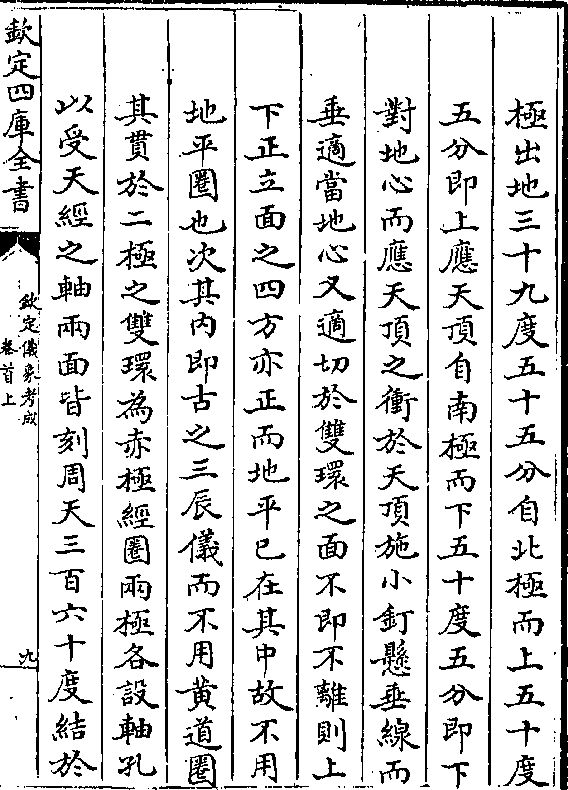 極出地三十九度五十五分自北極而上五十度
五分即上應天頂自南極而下五十度五分即下
對地心而應天頂之衝於天頂施小釘懸垂線而
垂適當地心又適切於雙環之面不即不離則上
下正立面之四方亦正而地平已在其中故不用
地平圈也次其内即古之三辰儀而不用黄道圈
其貫於二極之雙環為赤極經圈兩極各設軸孔
以受天經之軸兩面皆刻周天三百六十度結於
欽定四庫全書
欽定儀象考成
卷首上
九